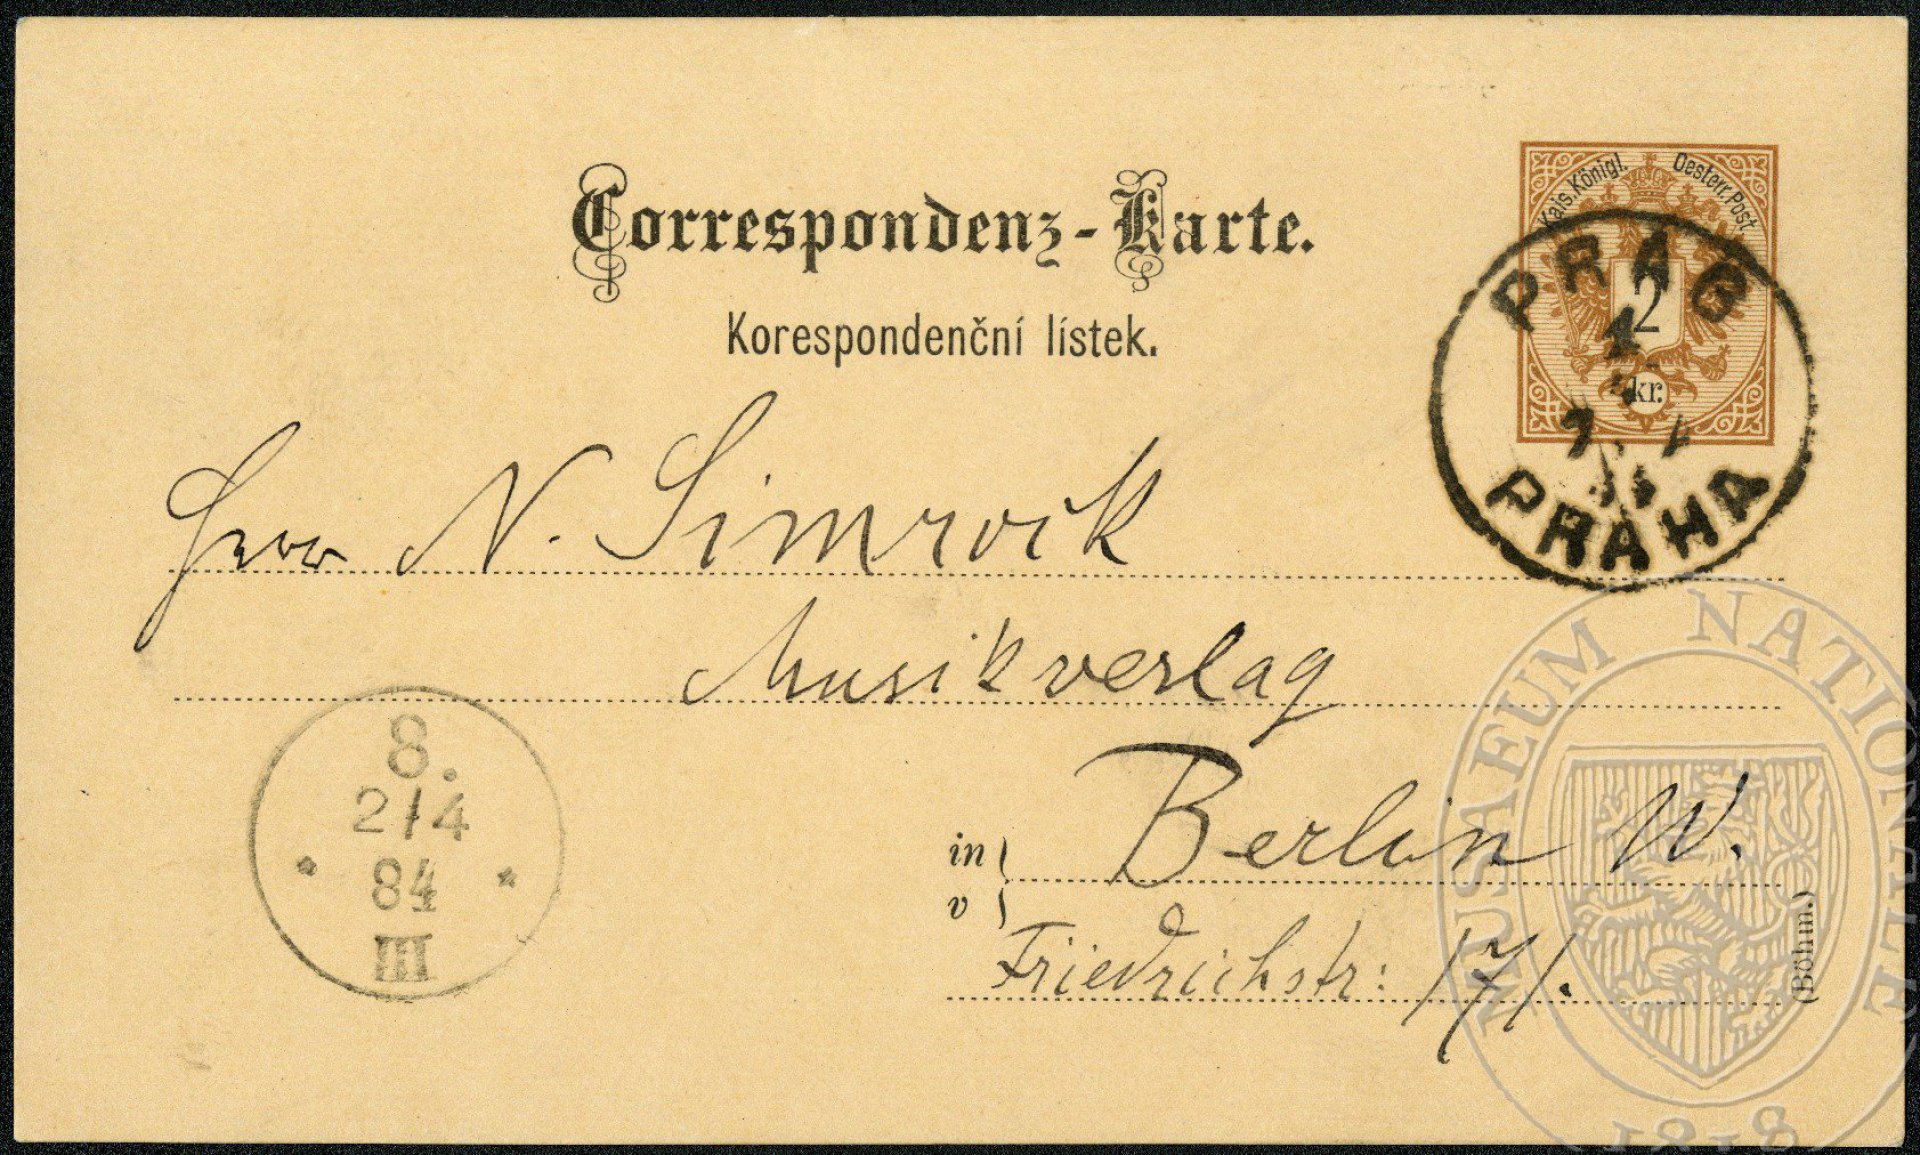 Correspondenz-Karte.
Korespondenční lístek.
Kais. Königl. Oesterr. Post
2
kr.
PRAG
PRAHA
Herr N. Simrock
Musikverlag
in Berlin W.
v
Friedrichstr: 171.
(Böhm.)
8.
2/4
84
III
MUSAEUM NATIONALE
1818